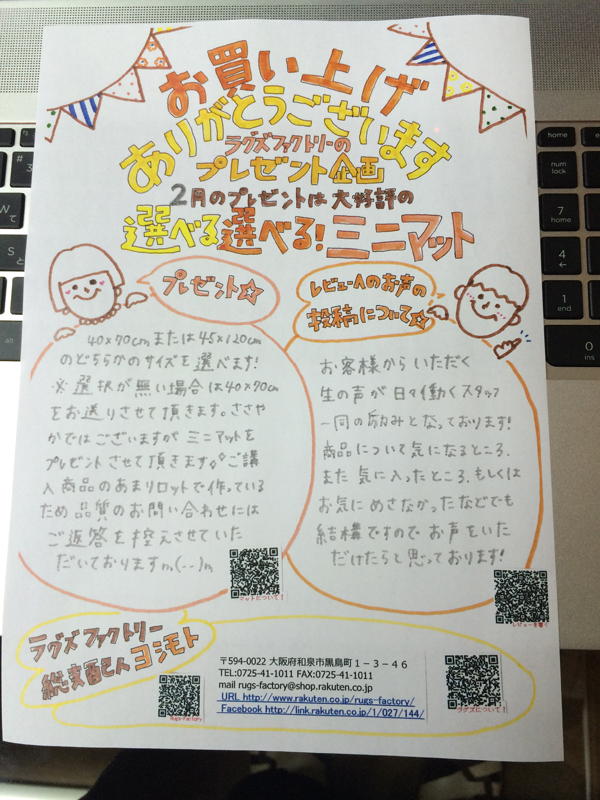 お買い上げ
ありがとうございます
ラグズファクトリーの
プレゼント企画
2月のプレゼントは大好評の
選べる選べる!ミニマット
プレゼント☆
40×70cmまたは45×120cm
のどちらかのサイズを選べます!
※選択が無い場合は40×70cm
をお送りさせて頂きます。ささや
かではございますがミニマットを
プレゼントさせて頂きます。ご購
入商品のあまりロットで作っている
ため品質のお問い合わせには
ご返答を控えさせていた
だいておりますm(--)m
マットについて!
レビューへのお声の
投稿について☆
お客様からいただく
生の声が日々働くスタッフ
一同の励みとなっております!
商品について気になるところ、
また気に入ったところ、もしくは
お気にめさなかったなどでも
結構ですのでお声をいた
だけたらと思っております!
レビューを書く
ラグズファクトリー
総支配にん ヨシモト
Rugs-Factory
〒594-0022 大阪府和泉市黒鳥町1-3-46
TEL:0725-41-1011 FAX:0725-41-1011
mail rugs-factory@shop.rakuten.co.jp
URL http://www.rakuten.co.jp/rugs-factory/
Facebook http://link.rakuten.co.jp/1/027/144/
ラグズについて!
home
end
num lock
7
home
4
←
1
end
0
ins
W
て
S
と
alt